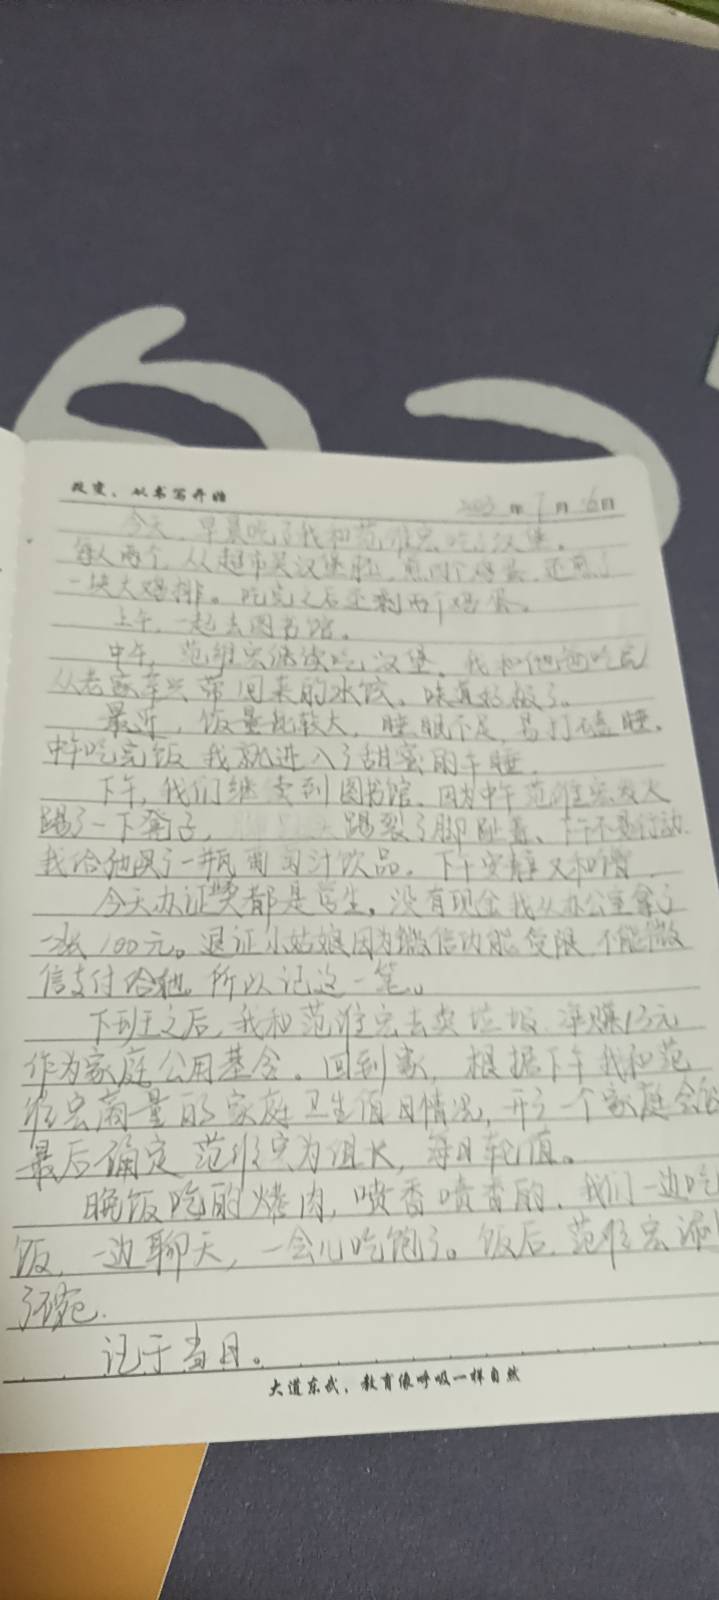 改变，从书写开始
2023年7月6日
今天，早晨吃了我和范维宏吃了汉堡。
每人两个，从超市买汉堡胚，煎四个鸡蛋，还煎了
一块大鸡排。吃完之后还剩两个鸡蛋。
上午，一起去图书馆。
中午，范维宏继续吃汉堡，我和他吃
从老家带回来的水饺，味真好极了。
最近，饭量比较大，睡眠不足，易打瞌睡。
中午吃完饭我就进入了甜蜜的午睡。
下午，我们继续到图书馆，因为中午范维宏
踢了一下凳子，踢裂了脚趾盖，下午不易行动
我给他买了一瓶葡萄汁饮品。下午安静又和谐
今天办证都是学生，没有现金我从办公室拿了
一张100元。退证小姑娘因为微信功能受限，不能微
信支付给他，所以记这一笔。
下班之后，我和范维宏去卖垃圾，净赚13元
作为家庭公用基金。回到家，根据下午我和范
维宏商量的家庭卫生值日情况，开了一个家庭会议
最后确定范维宏为组长，每日轮值。
晚饭吃的烤肉，喷香喷香的，我们一边吃
饭，一边聊天，一会儿吃饱了。饭后，范维宏涮
了碗。
记于当日。
大道东武，教育像呼吸一样自然